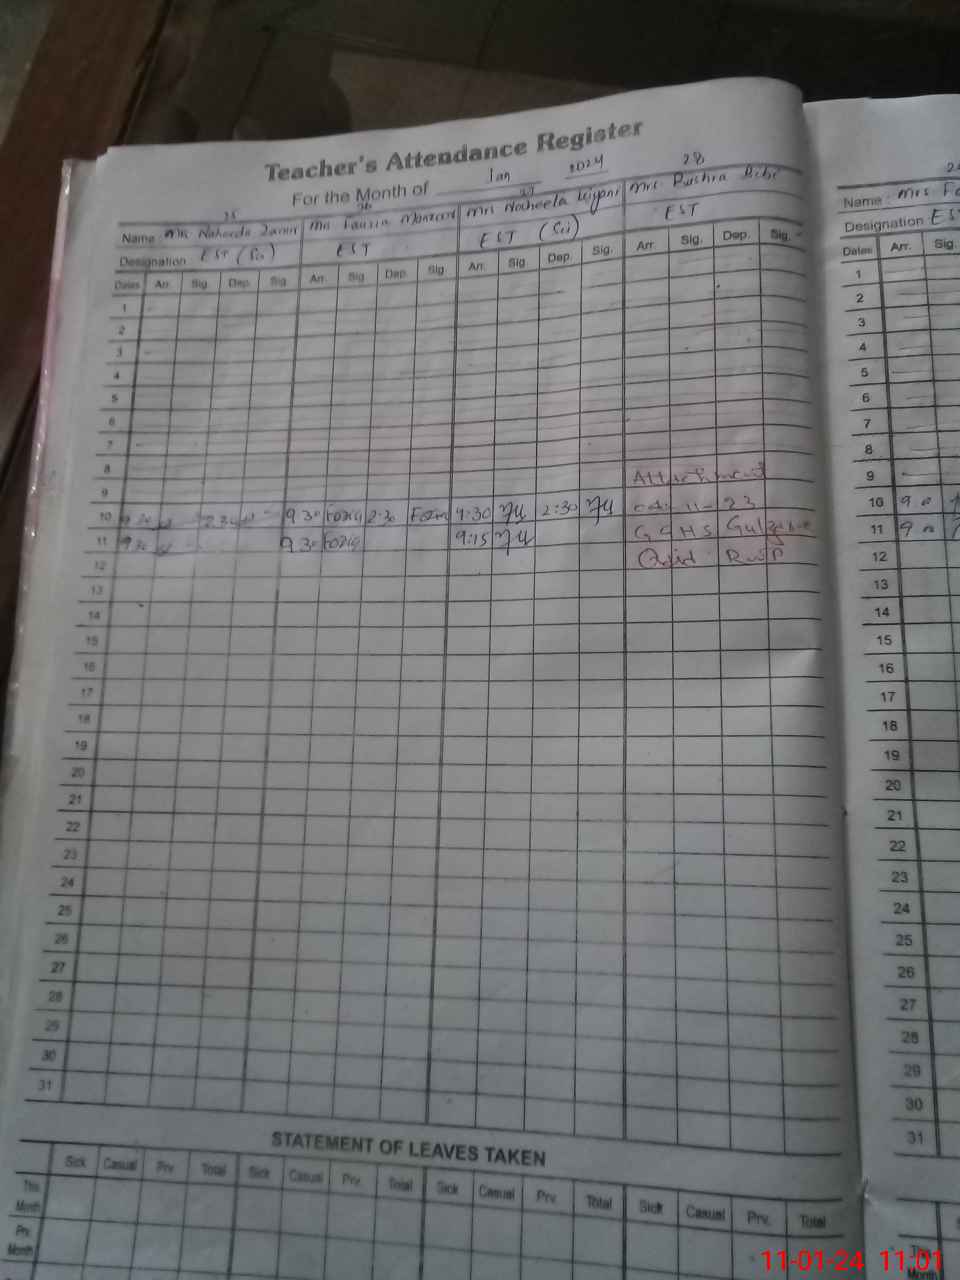 Teacher's Attendance Register
For the Month of Jan 2024
25 26 27 28
Name : Mrs Naheeda Mrs Fauzia Manzoor Mrs Naheela Mrs Bushra Bibi
Designation EST (Sci) EST EST (Sci) EST
Dates Arr. Sig. Dep. Sig Arr. Sig Dep. Sig Arr. Sig Dep. Sig. Arr. Sig. Dep. Sig.
1
2
3
4
5
6
7
8
9 Attachment
10 9:30 2:30 9:30 Fozia 2:30 Fozia 9:30 2:30 11-23
11 9:30 9:30 Fozia 9:15 GGHS
12 Quaid RWP
13
14
15
16
17
18
19
20
21
22
23
24
25
26
27
28
29
30
31
STATEMENT OF LEAVES TAKEN
Sick Casual Prv. Total Sick Casual Prv. Total Sick Casual Prv. Total Sick Casual Prv. Total
This Month
Prv. Month
Name : Mrs
Designation EST
Dates Arr. Sig.
1
2
3
4
5
6
7
8
9
10 9.0
11 9.0
12
13
14
15
16
17
18
19
20
21
22
23
24
25
26
27
28
29
30
31
This Month
11-01-24 11:01